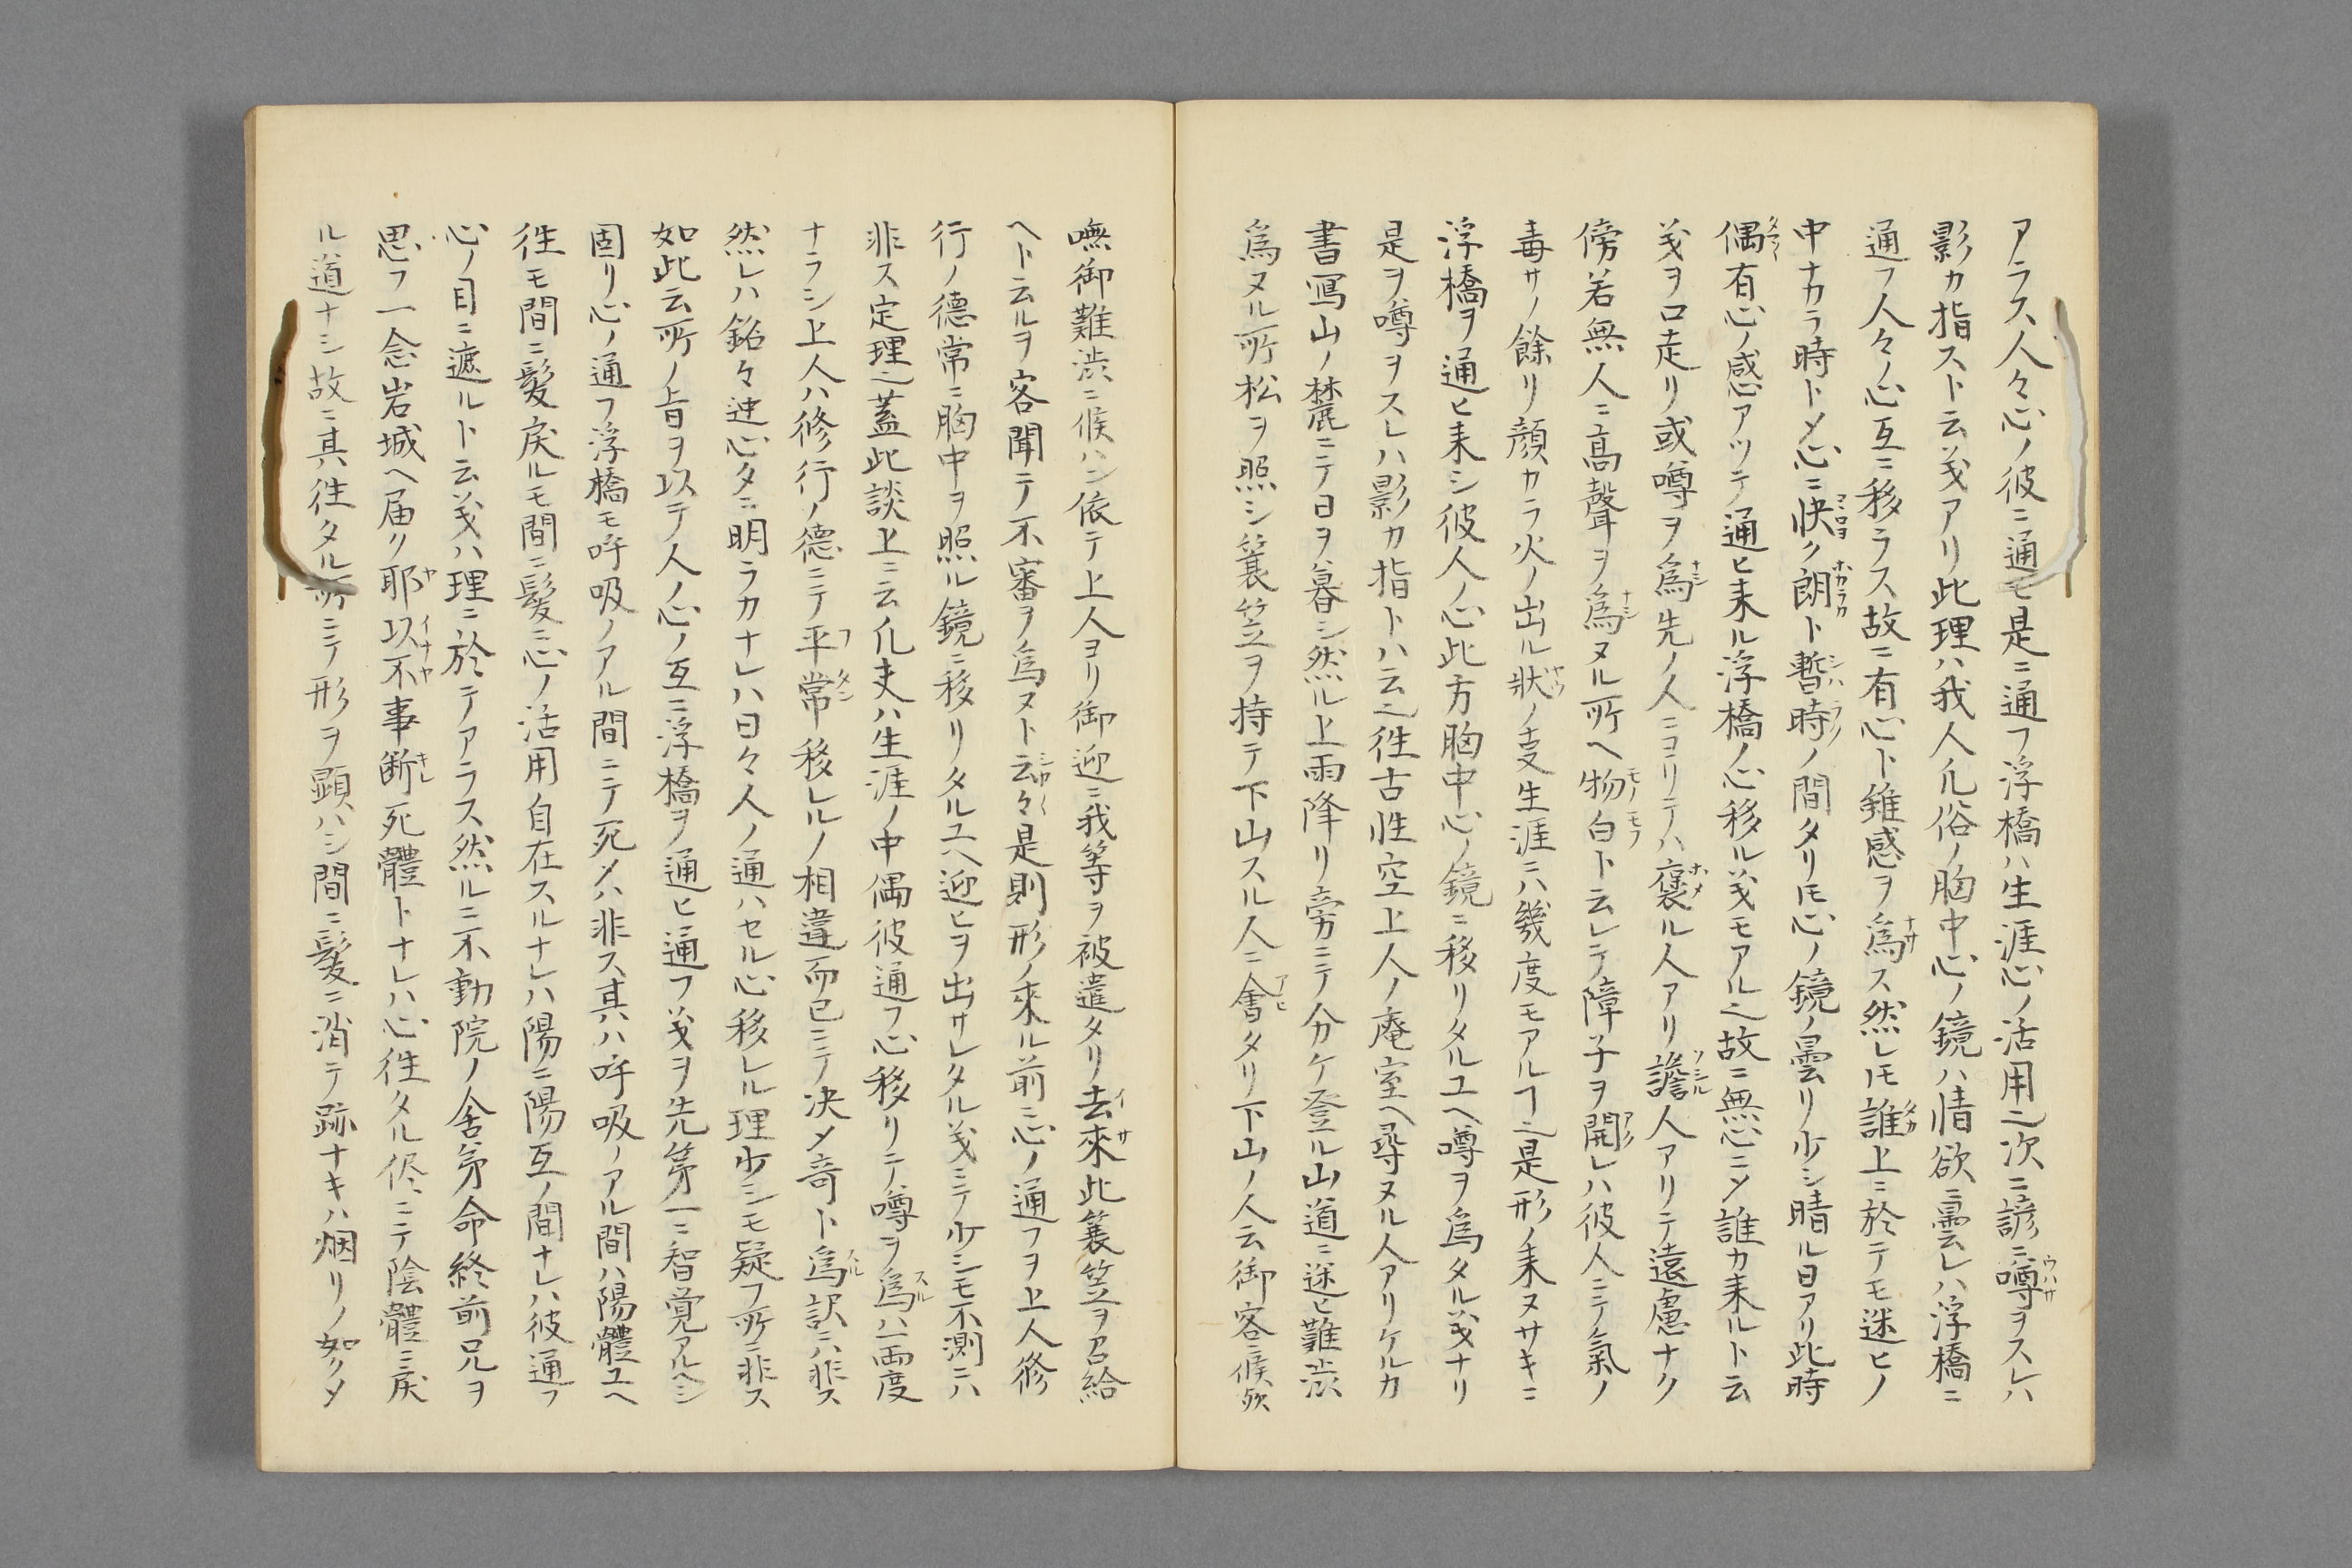 アラス人々心ノ彼ニ通モ是ニ通フ浮橋ハ生涯心ノ活用之次ニ諺ニ噂ヲスレハ
影カ指スト云義アリ此理ハ我人凡俗ノ胸中心ノ鏡ハ情欲ニ曇レハ浮橋ニ
通フ人々ノ心互ニ移ラス故ニ有心ト雖感ヲ為ス然レ𪜈誰上ニ於テモ迷ヒノ
中ナカラ時トメ心ニ快ク朗ト暫時ノ間タリ𪜈心ノ鏡ノ曇リ少シ晴ル日アリ此時
偶有心ノ感アツテ通ヒ来ル浮橋ノ心移ル義モアル之故ニ無心ニメ誰カ来ルト云
義ヲ口走リ或噂ヲ為先ノ人ニコリテハ褒ル人アリ譫人アリテ遠慮ナク
傍若無人ニ高聲ヲ為ヌル所ヘ物白ト云レテ障子ヲ開レハ彼人ニテ氣ノ
毒サノ餘リ顔カラ火ノ出ル状ノ支生涯ニハ幾度モアルヿ之是形ノ来ヌサキニ
浮橋ヲ通ヒ来シ彼人ノ心此方胸中心ノ鏡ニ移リタルユヘ噂ヲ為タル義ナリ
是ヲ噂ヲスレハ影カ指トハ云之往古性空上人ノ庵室ヘ尋ヌル人アリケルカ
書寫山ノ麓ニテ日ヲ暮シ然ル上雨降リ旁ニテ分ケ登ル山道ニ迷ヒ難渋
為ヌル所松ヲ照シ簑笠ヲ持テ下山スル人ニ會タリ下山ノ人云御客ニ候歟
嘸御難渋ニ候ハン依テ上人ヨリ御迎ニ我等ヲ被遣タリ去來此簑笠ヲ召給
ヘト云ルヲ客聞テ不審ヲ為ヌト云々是則形ノ來ル前ニ心ノ通フヲ上人修
行ノ德常ニ胸中ヲ照ル鏡ニ移リタルユヘ迎ヒヲ出サレタル義ニテ少シモ不測ニハ
非ス定理之蓋此談上ニ云凡夫ハ生涯ノ中偶彼通フ心移リテ噂ヲ為ハ一両度
ナラシ上人ハ修行ノ德ニテ平常移レルノ相違而已ニテ决メ奇ト為訳ニハ非ス
然レハ銘々迚心タニ明ラカナレハ日々人ノ通ハセル心移レル理少シモ疑フ所ニ非ス
如此云所ノ旨ヲ以テ人ノ心ノ互ニ浮橋ヲ通ヒ通フ義ヲ先第一ニ智覚アルヘシ
固リ心ノ通フ浮橋モ呼吸ノアル間ニテ死メハ非ス其ハ呼吸ノアル間ハ陽體ユヘ
往モ間ニ髪戻ルモ間ニ髪ニ心ノ活用自在スルナレハ陽ニ陽互ノ間ナレハ彼通フ
心ノ目ニ遮ルト云義ハ理ニ於テアラス然ルニ不動院ノ舎弟命終前兄ヲ
思フ一念岩城ヘ届ク耶以不事断死體トナレハ心往タル侭ニテ陰體ニ戻
ル道ナシ故ニ其往タル所ニテ形ヲ顕ハシ間ニ髪ニ消テ跡ナキハ烟リノ如クメ